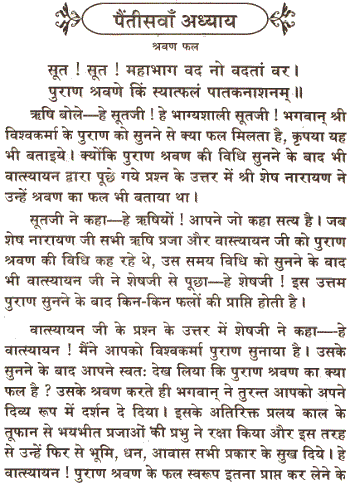 पैंतीसवाँ अध्याय
श्रवण फल
सूत ! सूत ! महाभाग वद नो वदतां वर।
पुराण श्रवणे किं स्यात्फलं पातकनाशनम् ॥
ऋषि बोले—हे सूतजी ! हे भाग्यशाली सूतजी ! भगवान् श्री
विश्वकर्मा के पुराण को सुनने से क्या फल मिलता है, कृपया यह
भी बताइये। क्योंकि पुराण श्रवण की विधि सुनने के बाद भी
वात्स्यायन द्वारा पूछे गये प्रश्न के उत्तर में श्री शेष नारायण ने
उन्हें श्रवण का फल भी बताया था।
सूतजी ने कहा—हे ऋषियों ! आपने जो कहा सत्य है। जब
शेष नारायण जी सभी ऋषि प्रजा और वास्त्यायन जी को पुराण
श्रवण की विधि कह रहे थे, उस समय विधि को सुनने के बाद
भी वात्स्यायन जी ने शेषजी से पूछा—हे शेषजी ! इस उत्तम
पुराण सुनने के बाद किन-किन फलों की प्राप्ति होती है।
वात्स्यायन जी के प्रश्न के उत्तर में शेषजी ने कहा—हे
वात्स्यायन ! मैंने आपको विश्वकर्मा पुराण सुनाया है। उसके
सुनने के बाद आपने स्वतः देख लिया कि पुराण श्रवण का क्या
फल है ? उसके श्रवण करते ही भगवान् ने तुरन्त आपको अपने
दिव्य रूप में दर्शन दे दिया। इसके अतिरिक्त प्रलय काल के
तूफान से भयभीत प्रजाओं की प्रभु ने रक्षा किया और इस तरह
से उन्हें फिर से भूमि, धन, आवास सभी प्रकार के सुख दिये। हे
वात्स्यायन ! पुराण श्रवण के फल स्वरूप इतना प्राप्त कर लेने के